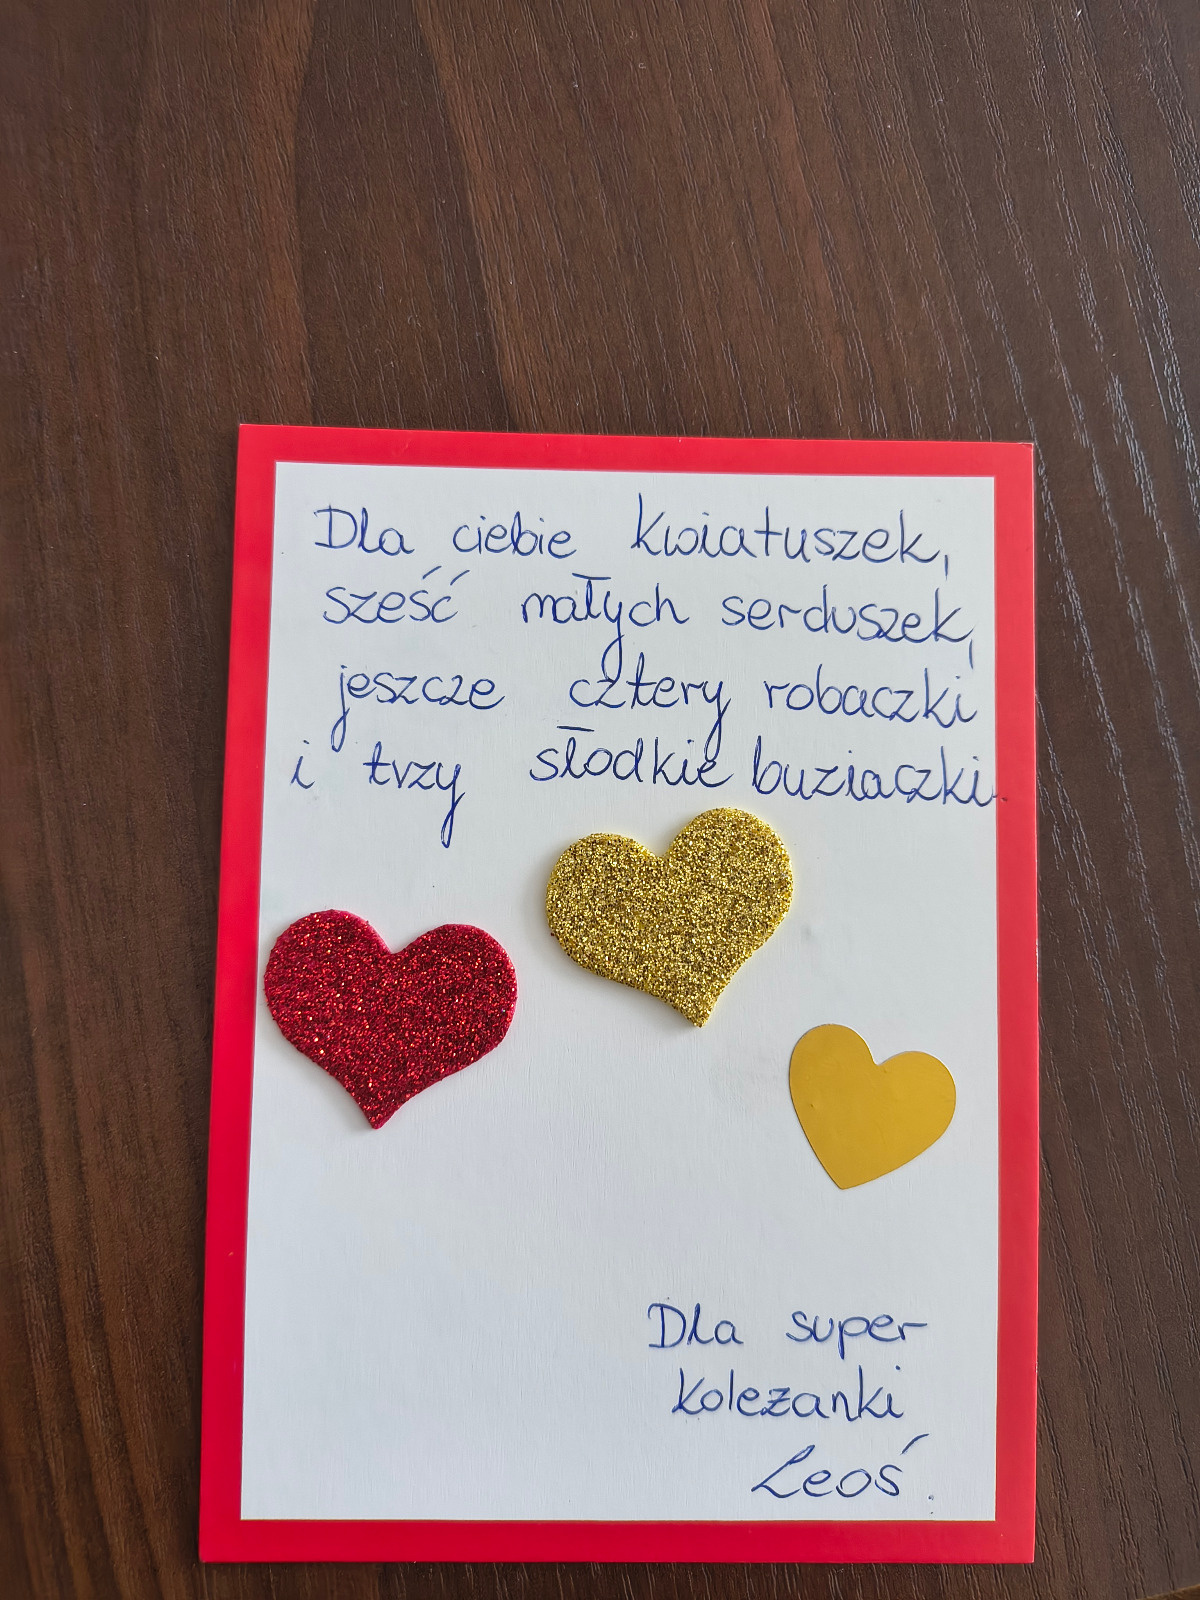 Dla ciebie kwiatuszek,
sześć małych serduszek,
jeszcze cztery robaczki
i trzy słodkie buziaczki.
Dla super
koleżanki
Leoś.